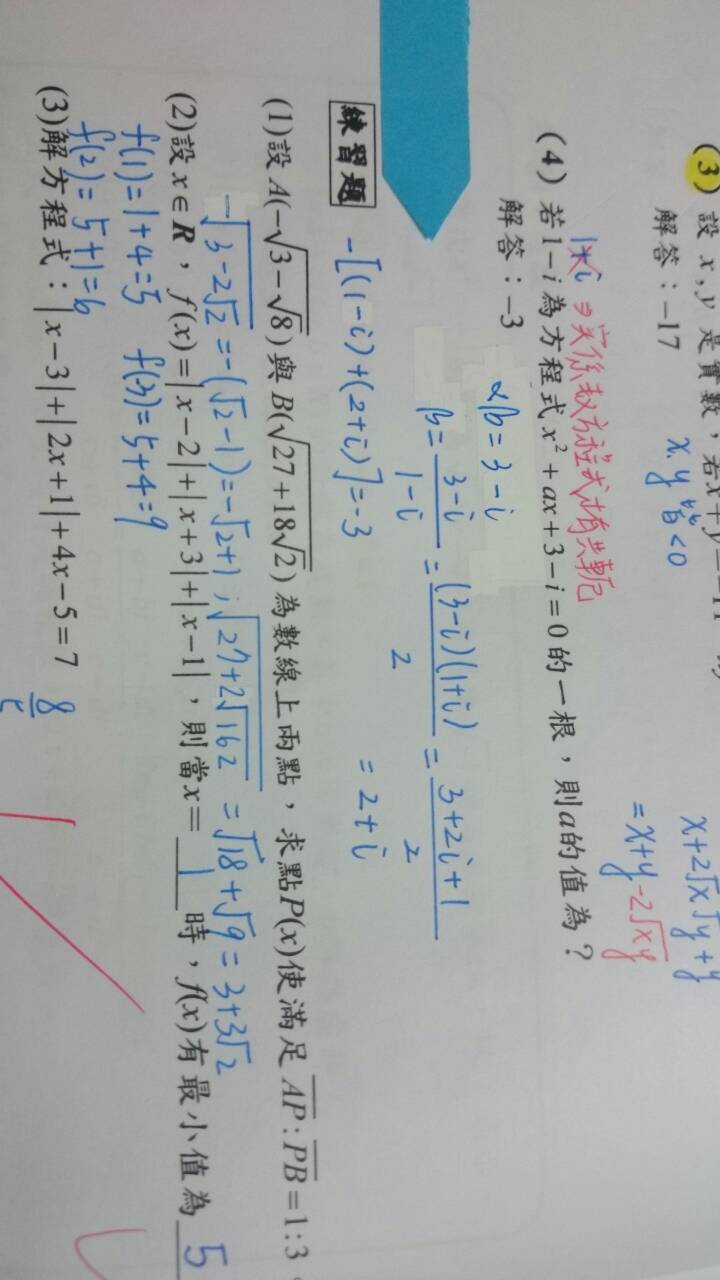 (3) 設 x,y 是實數，若x+y=
x+2√x√y+y
x.y 皆<0
=x+y-2√xy
解答：-17
1+i ⇒ 實係數方程式有共軛
(4) 若1-i為方程式x²+ax+3-i=0的一根，則a的值為？
解答：-3
αβ=3-i
β=(3-i)/(1-i)=(3-i)(1+i)/2=(3+2i+1)/2
=2+i
-[(1-i)+(2+i)]=-3
練習題
(1)設A(-√(3-√8))與B(√(27+18√2))為數線上兩點，求點P(x)使滿足AP:PB=1:3。
-√(3-2√2)=-(√2-1)=-√2+1；√(27+2√162)=√18+√9=3+3√2
(2)設x∈R，f(x)=|x-2|+|x+3|+|x-1|，則當x=1時，f(x)有最小值為5
f(1)=1+4=5 f(3)=5+4=9
f(2)=5+1=6
(3)解方程式：|x-3|+|2x+1|+4x-5=7
8